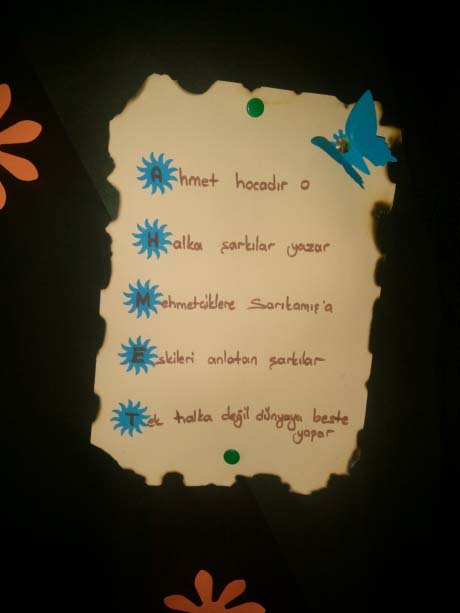 Ahmet hocadır o
Halka şarkılar yazar
Mehmetciklere Sarıkamış'a
Eskileri anlatan şarkılar
Tek halka değil dünyaya beste
yapar